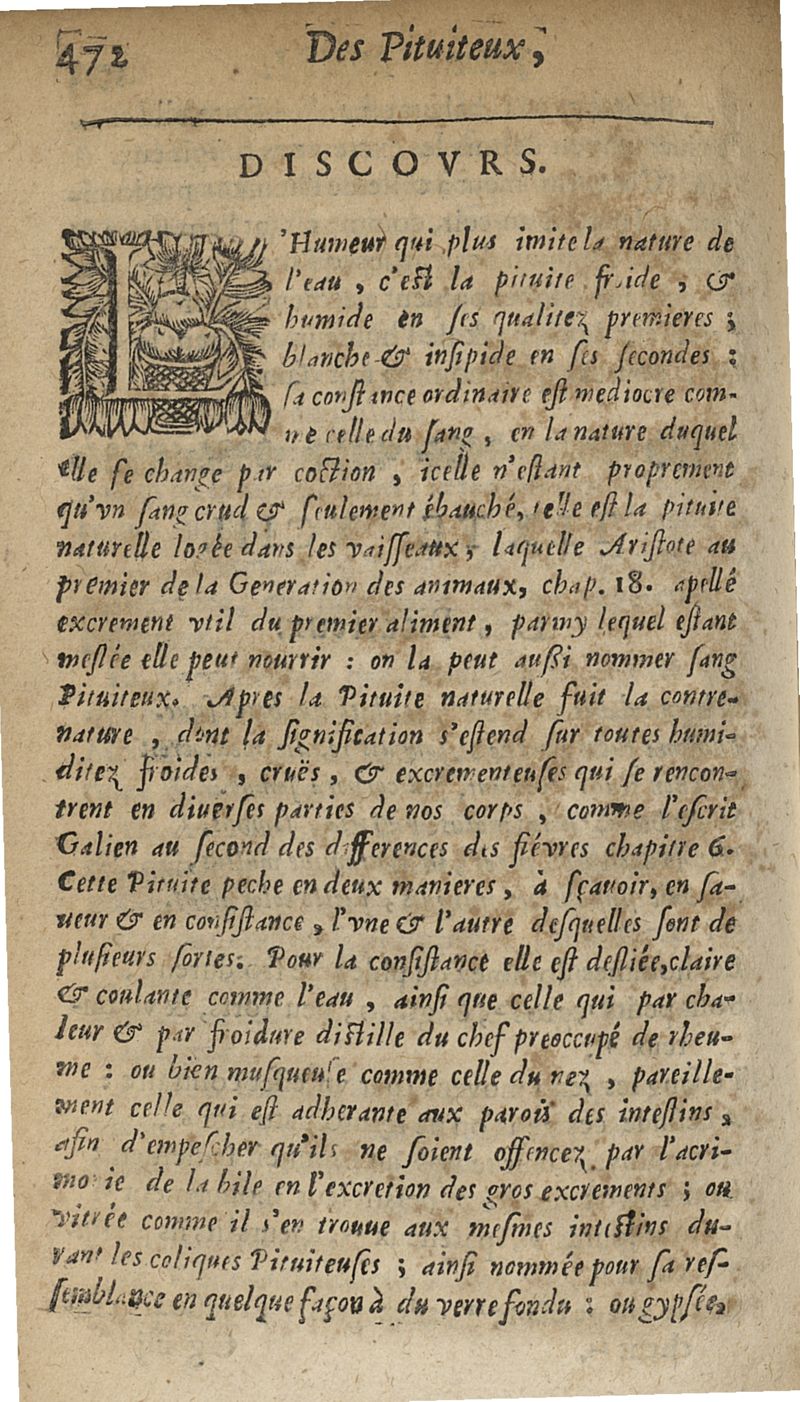 472 Des Pituiteux,
DISCOVRS.
L'Humeur qui plus imite la nature de
l'eau, c'est la pituite froide, &
humide en ses qualitez premieres ;
blanche & insipide en ses secondes :
sa constance ordinaire est mediocre com-
me celle du sang, en la nature duquel
elle se change par coction, icelle n'estant proprement
qu'vn sang crud & seulement ébauché, telle est la pituite
naturelle logée dans les vaisseaux, laquelle Aristote au
premier de la Generation des animaux, chap. 18. apellé
excrement vtil du premier aliment, parmy lequel estant
meslée elle peut nourrir : on la peut aussi nommer sang
Pituiteux. Apres la Pituite naturelle suit la contre-
nature, dont la signification s'estend sur toutes humi-
ditez froides, cruës, & excrementeuses qui se rencon-
trent en diverses parties de nos corps, comme l'escrit
Galien au second des differences des fiévres chapitre 6.
Cette Pituite peche en deux manieres, à sçavoir, en sa-
ueur & en consistance, l'vne & l'autre desquelles sont de
plusieurs sortes. Pour la consistance elle est desliée, claire
& coulante comme l'eau, ainsi que celle qui par cha-
leur & par froidure distille du chef preoccupé de rheu-
me : ou bien musqueuse comme celle du nez, pareille-
ment celle qui est adherante aux parois des intestins,
afin d'empescher qu'ils ne soient offencez par l'acri-
monie de la bile en l'excretion des gros excrements ; ou
vitrée comme il s'en trouue aux mesmes intestins du-
rant les coliques Pituiteuses ; ainsi nommée pour sa res-
semblance en quelque façon à du verre fondu : ou gypsée,